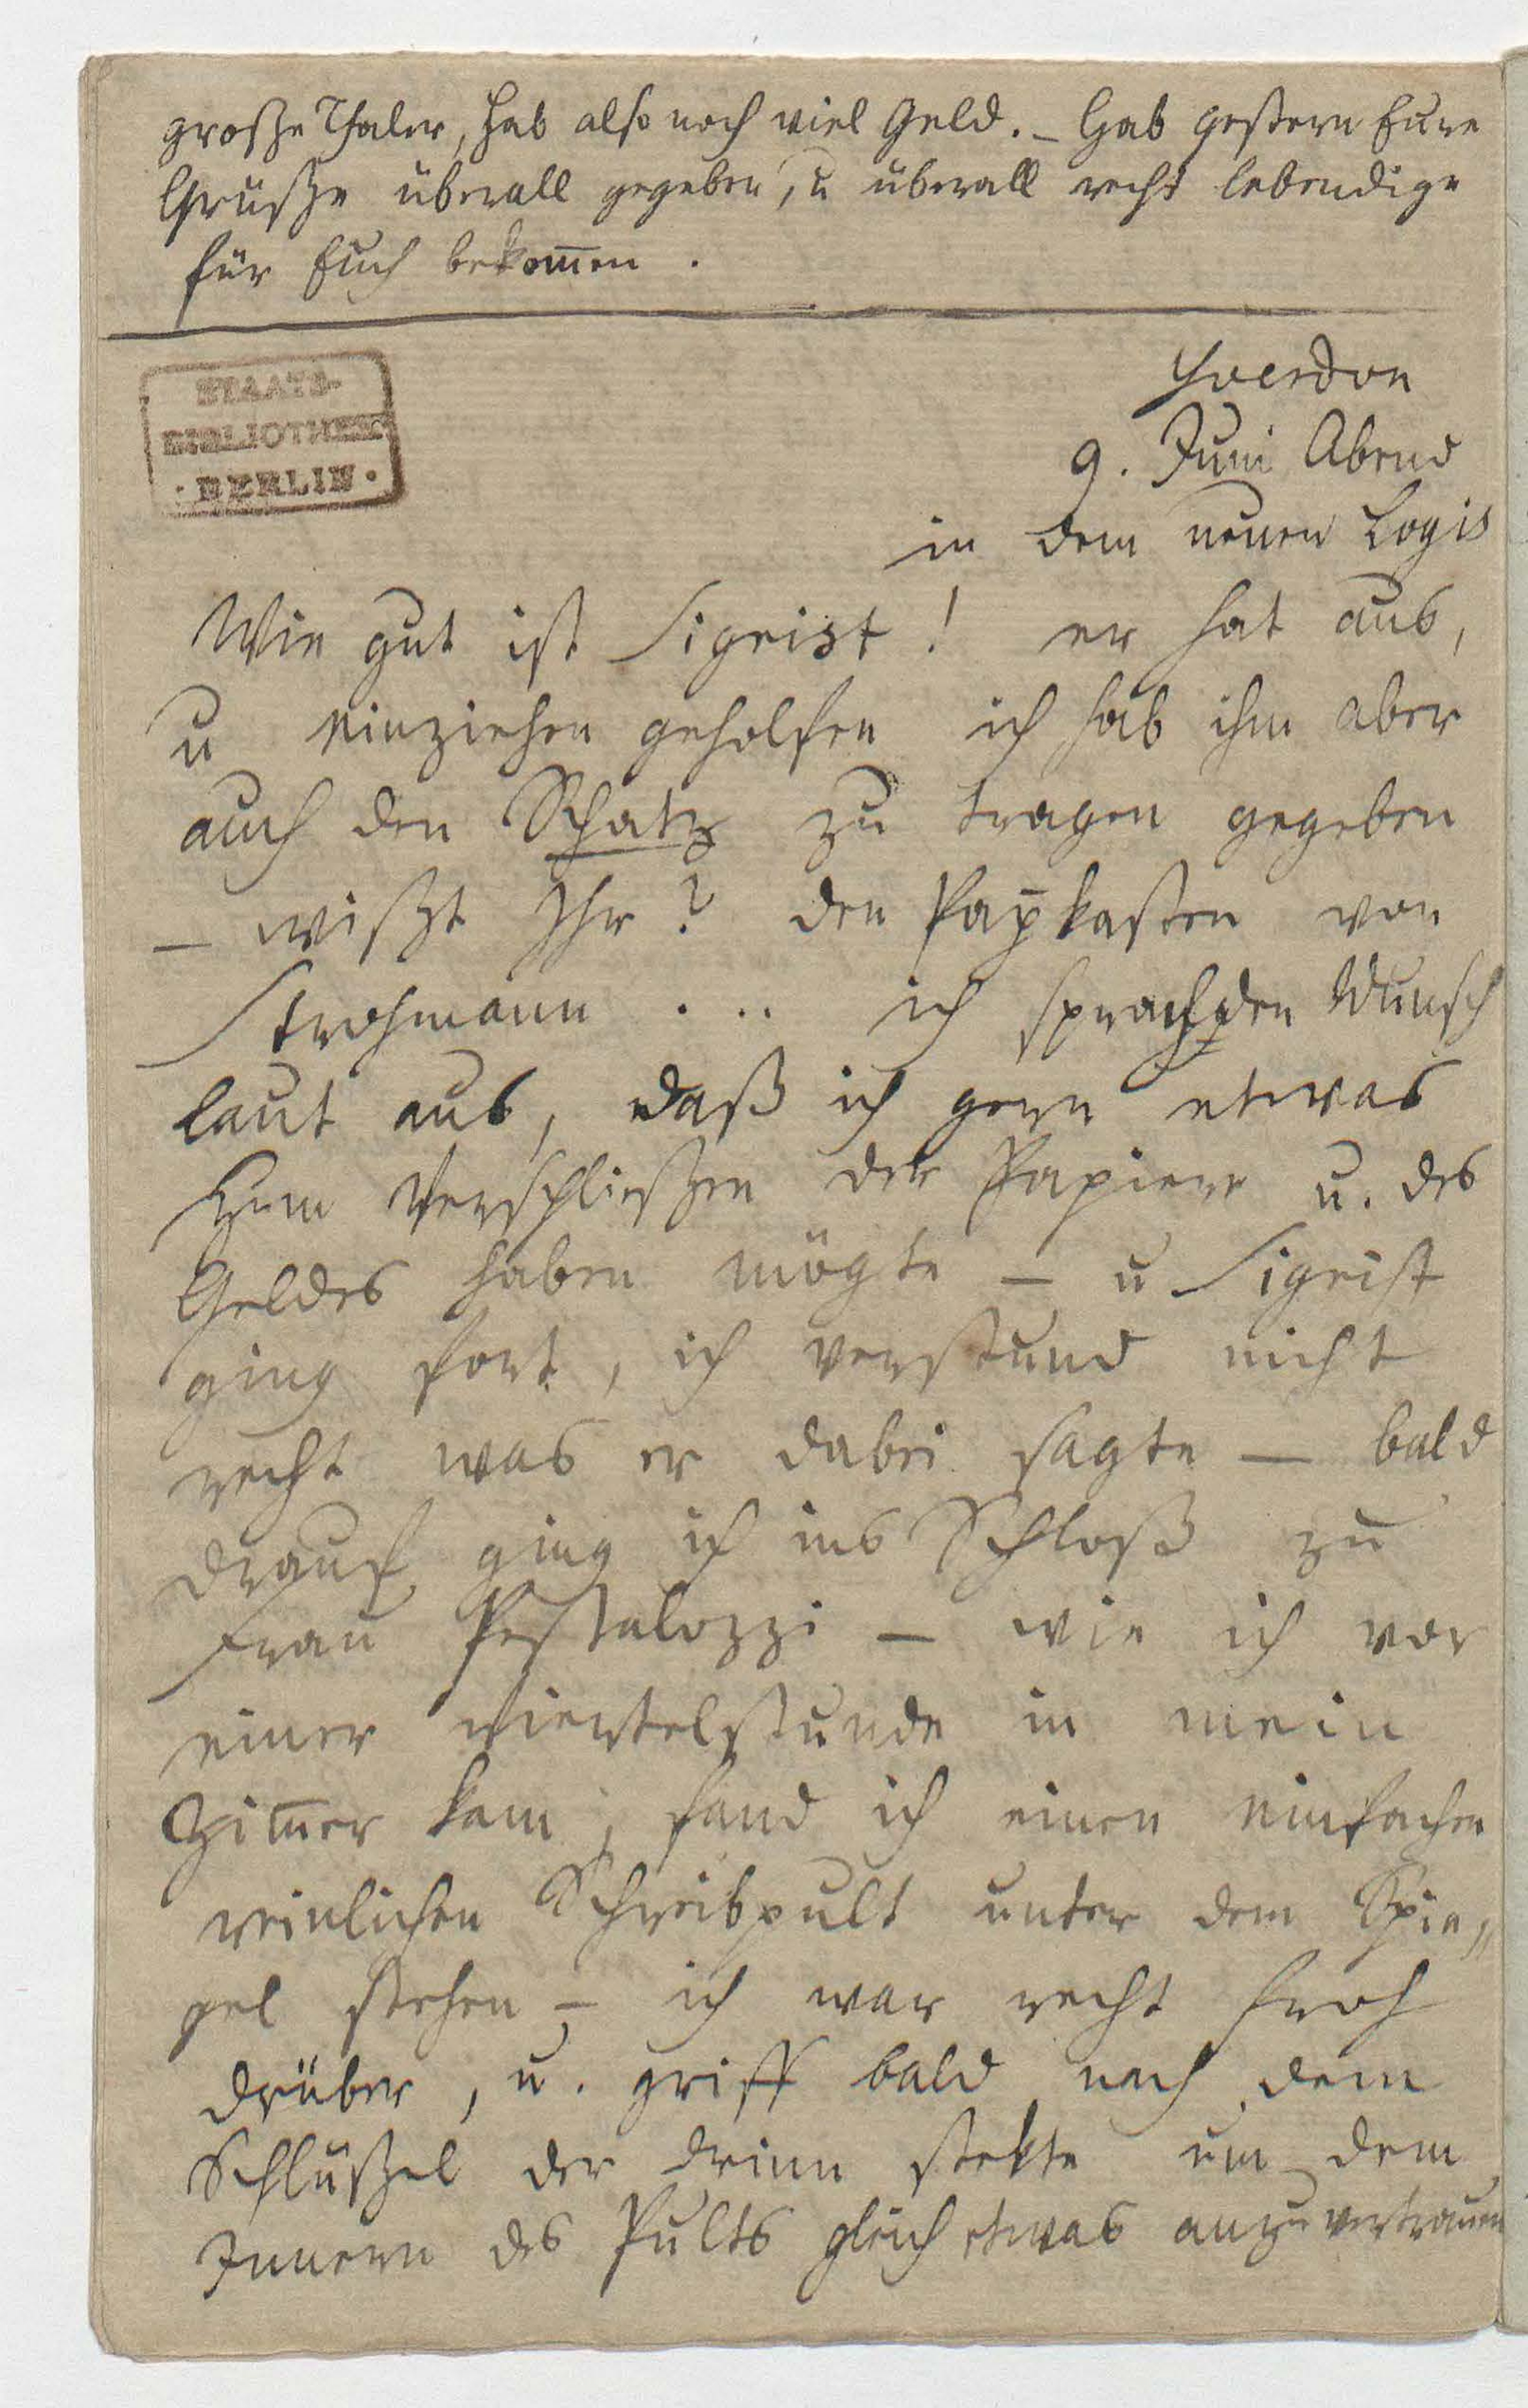 große Thaler, hab also noch viel Geld. – Hab gestern Eure
Grüße überall gegeben, u überall recht lebendige
für Euch bekom̅en.
Yverdon
9. Juni Abend
STAATS-
BIBLIOTHEK
· BERLIN ·
in dem neuen Logis
Wie gut ist Sigrist! er hat aus,
u einziehen geholfen ich hab ihm aber
auch den Schatz zu tragen gegeben
– wißt Ihr? den Pap̅kasten von
Strohmann ... ich sprach den Wunsch
laut aus, daß ich gern etwas
zum Verschließen der Papiere u. des
Geldes haben mögte – u Sigrist
ging fort, ich verstund nicht
recht was er dabei sagte – bald
drauf ging ich ins Schloß zu
Frau Pestalozzi – wie ich vor
einer viertelstunde in mein
Zim̅er kam, fand ich einen einfachen
reinlichen Schreibpult unter dem Spie„
gel stehen – ich war recht froh
drüber, u. griff bald nach dem
Schlüßel der drinn stekte um dem
Innern des Pults gleich etwas anzuvertrauen